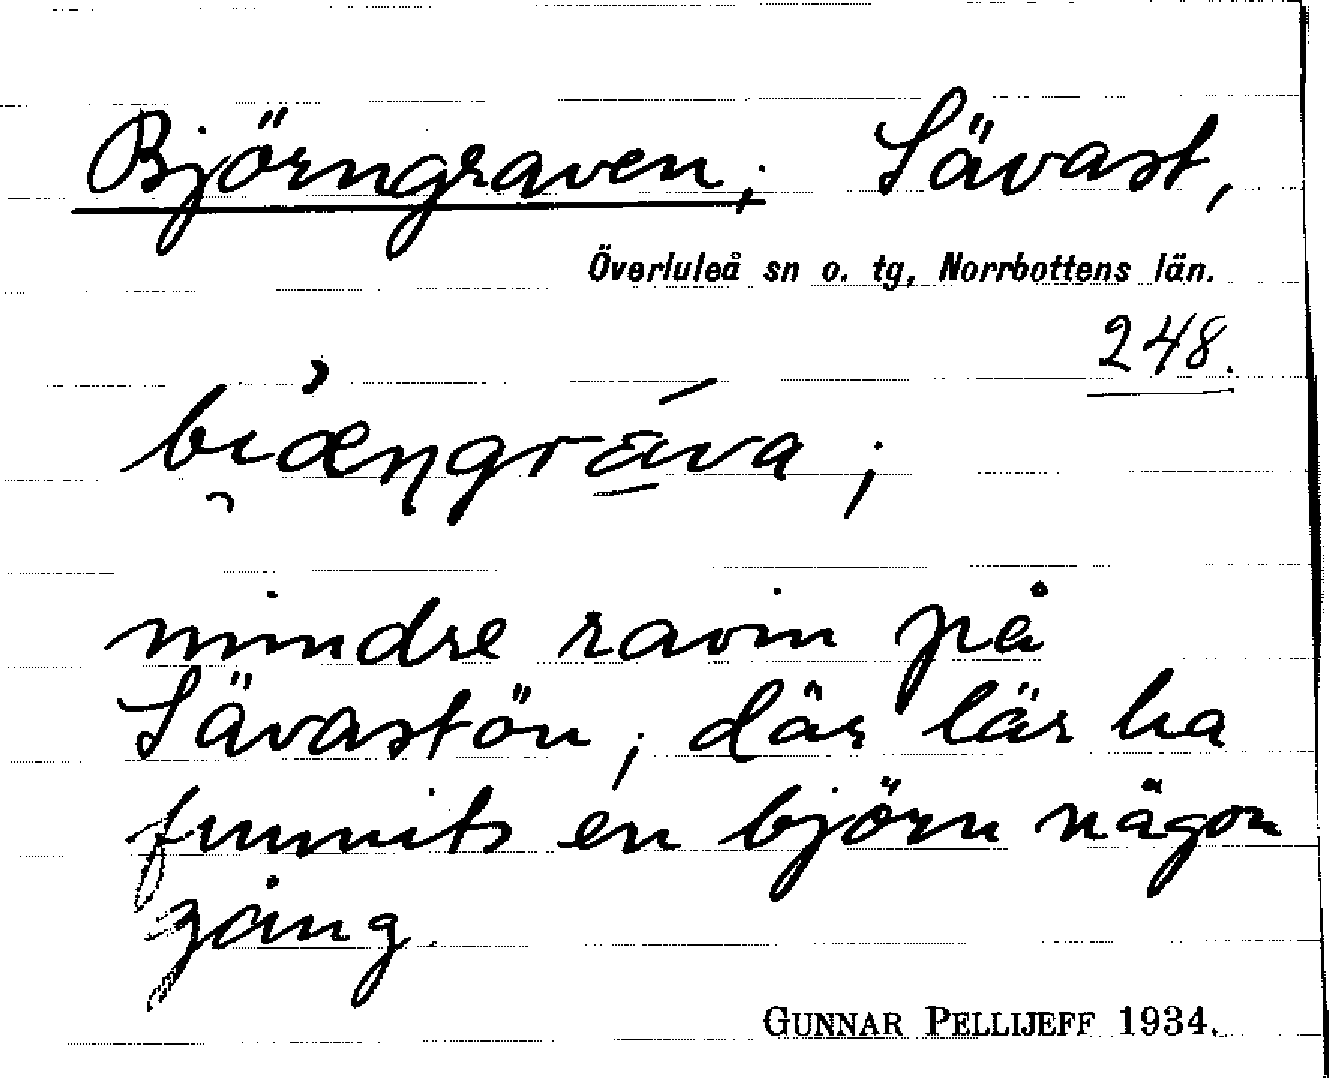 Björngraven; Sävast,
Överluleå sn o. tg, Norrbottens län.
248.
mindre ravin på
Sävastön; där lär ha
funnits en björn någon
gång.
GUNNAR PELLIJEFF 1934.